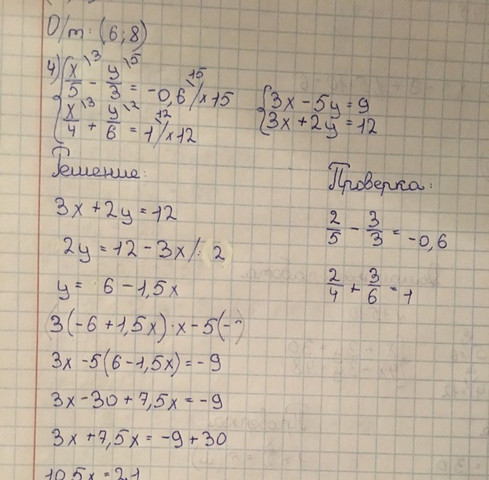 О/т: (6; 8)
4) { x/5 \3 - y/3 \5 = -0,6 \15 /×15
{ x/4 \3 + y/6 \2 = 1 \12 /×12
{ 3x - 5y = 9
{ 3x + 2y = 12
Решение:
3x + 2y = 12
2y = 12 - 3x /: 2
y = 6 - 1,5x
3(-6 + 1,5x) · x - 5(-
3x - 5(6 - 1,5x) = -9
3x - 30 + 7,5x = -9
3x + 7,5x = -9 + 30
10,5x = 21
Проверка:
2/5 - 3/3 = -0,6
2/4 + 3/6 = 1